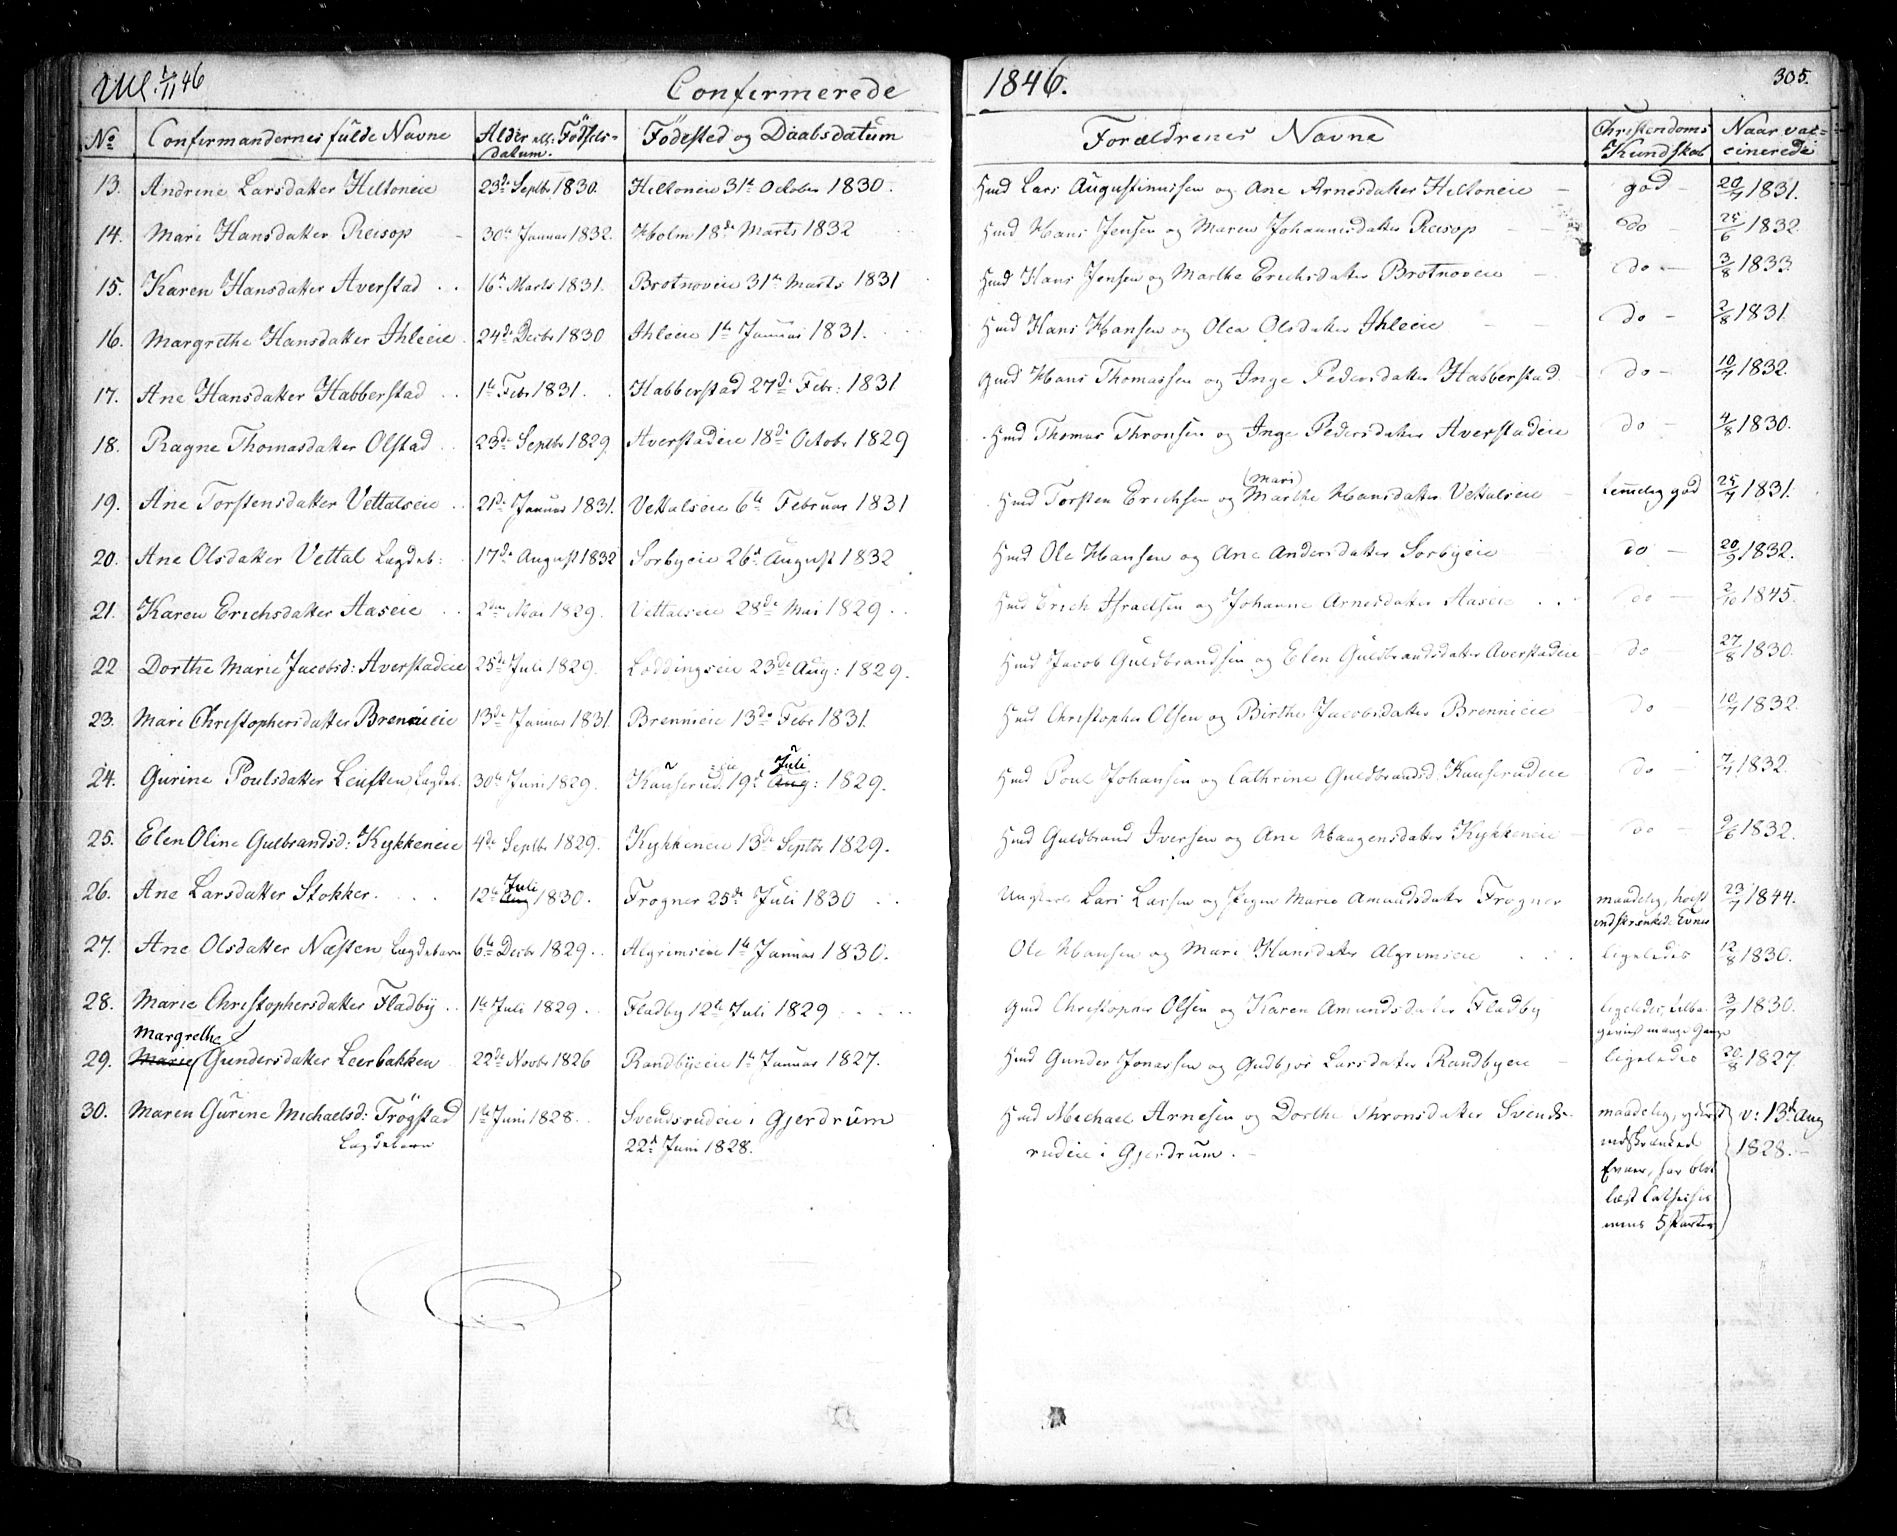 Ull. 1/11 46 Confirmerede 1846. 305.
No Confirmandernes fulde Navne Alder ell: Födsels- Födested og Daabsdatum Forældrenes Navne Christendoms Naar vac-
datum. Kundskab cinerede
13. Andrine Larsdatter Hiltoneie 23de Septbr 1830. Hiltoneie 31te October 1830. Hmd Lars Augustinussen og Ane Arnesdatter Hiltoneie god 20/7 1831.
14. Mari Hansdatter Reisop 30te Januar 1832. Holm 18de Marts 1832 Hmd Hans Jensen og Maren Johannesdatter Reisop do 25/6 1832
15. Karen Hansdatter Averstad 16te Marts 1831. Brotnoveie 31te Marts 1831 Hmd Hans Jensen og Marthe Erichsdatter Brotnoveie do 3/8 1833.
16. Margrethe Hansdatter Ihleeie 24de Decbr 1830 Ihleeie 1te Januar 1831. Hmd Hans Hansen og Olea Olsdatter Ihleeie do 2/8 1831
17. Ane Hansdatter Habberstad 1te Febr 1831. Habberstad 27de Febr: 1831 Gmd Hans Thomassen og Inge Pedersdatter Habberstad do 10/7 1832.
18. Ragne Thomasdatter Olstad 23de Septbr 1829. Averstadeie 18de Octobr 1829 Hmd Thomas Thronsen og Inge Pedersdatter Averstadeie do 4/8 1830.
(Mari)
19. Ane Torstensdatter Vettalseie 21de Januar 1831. Vettalseie 6te Februar 1831 Hmd Torsten Erichsen og Marthe Hansdatter Vettalseie temmelig god 25/7 1831.
20. Ane Olsdatter Vettal Lægdeb: 17de August 1832 Sorbyeie 26d August 1832 Hmd Ole Hansen og Ane Andersdatter Sorbyeie do 20/9 1832.
21. Karen Erichsdatter Aaseie 2den Mai 1829. Vettalseie 28de Mai 1829. Hmd Erich Israelsen og Johanne Arnesdatter Aaseie do 2/10 1845.
22 Dorthe Marie Jacobsd: Averstadeie 25de Juli 1829. Loddingseie 23de Aug: 1829. Hmd Jacob Guldbrandsen og Elen Guldbrandsdatter Averstadeie do 27/8 1830.
23. Mari Christophersdatter Brennieie 13de Januar 1831. Brennieie 13de Febr 1831. Hmd Christopher Olsen og Birthe Jacobsdatter Brennieie do 10/7 1832
eie Juli
24. Gurine Poulsdatter Leiksten Lægdeb. 30te Juni 1829. Kauserud 19d Aug: 1829. Hmd Poul Johansen og Cathrine Guldbrandsd. Kauserudeie do 7/7 1832.
25. Elen Oline Gulbrandsd: Kykkeneie 4de Septbr 1829. Kykkeneie 13de Septbr 1829. Hmd Guldbrand Iversen og Ane Haagensdatter Kykkeneie do 9/6 1832.
Juli
26. Ane Larsdatter Stokker. 12te Aug 1830. Frogner 25de Juli 1830 Lars Larsen og Marie Amundsdatter Frogner maadelig, høist 23/7 1844.
indskrænked. Evner
27. Ane Olsdatter Næsten Lægdebarn 6te Decbr 1829. Algrimseie 1te Januar 1830. Ole Hansen og Mari Hansdatter Algrimseie ligeledes 12/8 1830.
28. Marie Christophersdatter Fladby 1te Juli 1829. Fladby 12te Juli 1829 Gmd Christopher Olsen og Karen Amundsdatter Fladby ligeledes, 3/7 1830.
Margrethe mange Gange
29. Marie Gundersdatter Leerbakken 22de Novbr 1826 Randbyeie 1te Januar 1827. Hmd Gunder Jonassen og Gudbjor Larsdatter Randbyeie ligeledes 20/8 1827.
30. Maren Gurine Michaelsd: Trögstad 1te Juni 1828. Svendsrudeie i Gjerdrum Hmd Michael Arnesen og Dorthe Thronsdatter Svends- maadelig, yderst v: 13d Aug
Lægdebarn 22d Juni 1828. rudeie i Gjerdrum. indskrænkede 1828.
Evner, har blot
læst Catechis-
mens 5 Parter